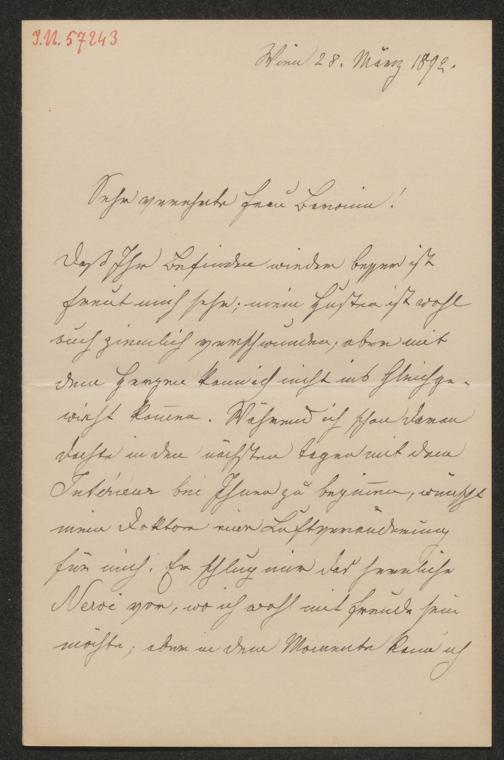 I.N. 57243
Wien 28. März 1892.
Sehr verehrte Frau Baronin!
Daß Ihr Befinden wieder besser ist
freut mich sehr; mein Husten ist wohl
auch ziemlich verschwunden; aber mit
dem Herzen kann ich nicht ins Gleichge-
wicht kom̅en. Während ich schon daran
dachte in den nächsten Tagen mit dem
Intérieur bei Ihnen zu begin̅en, wünscht
mein Doktor eine Luftveränderung
für mich. Er schlug mir das herrliche
Nervi vor, wo ich wohl mit Freude sein
möchte; aber in dem Momente kan̅ ich